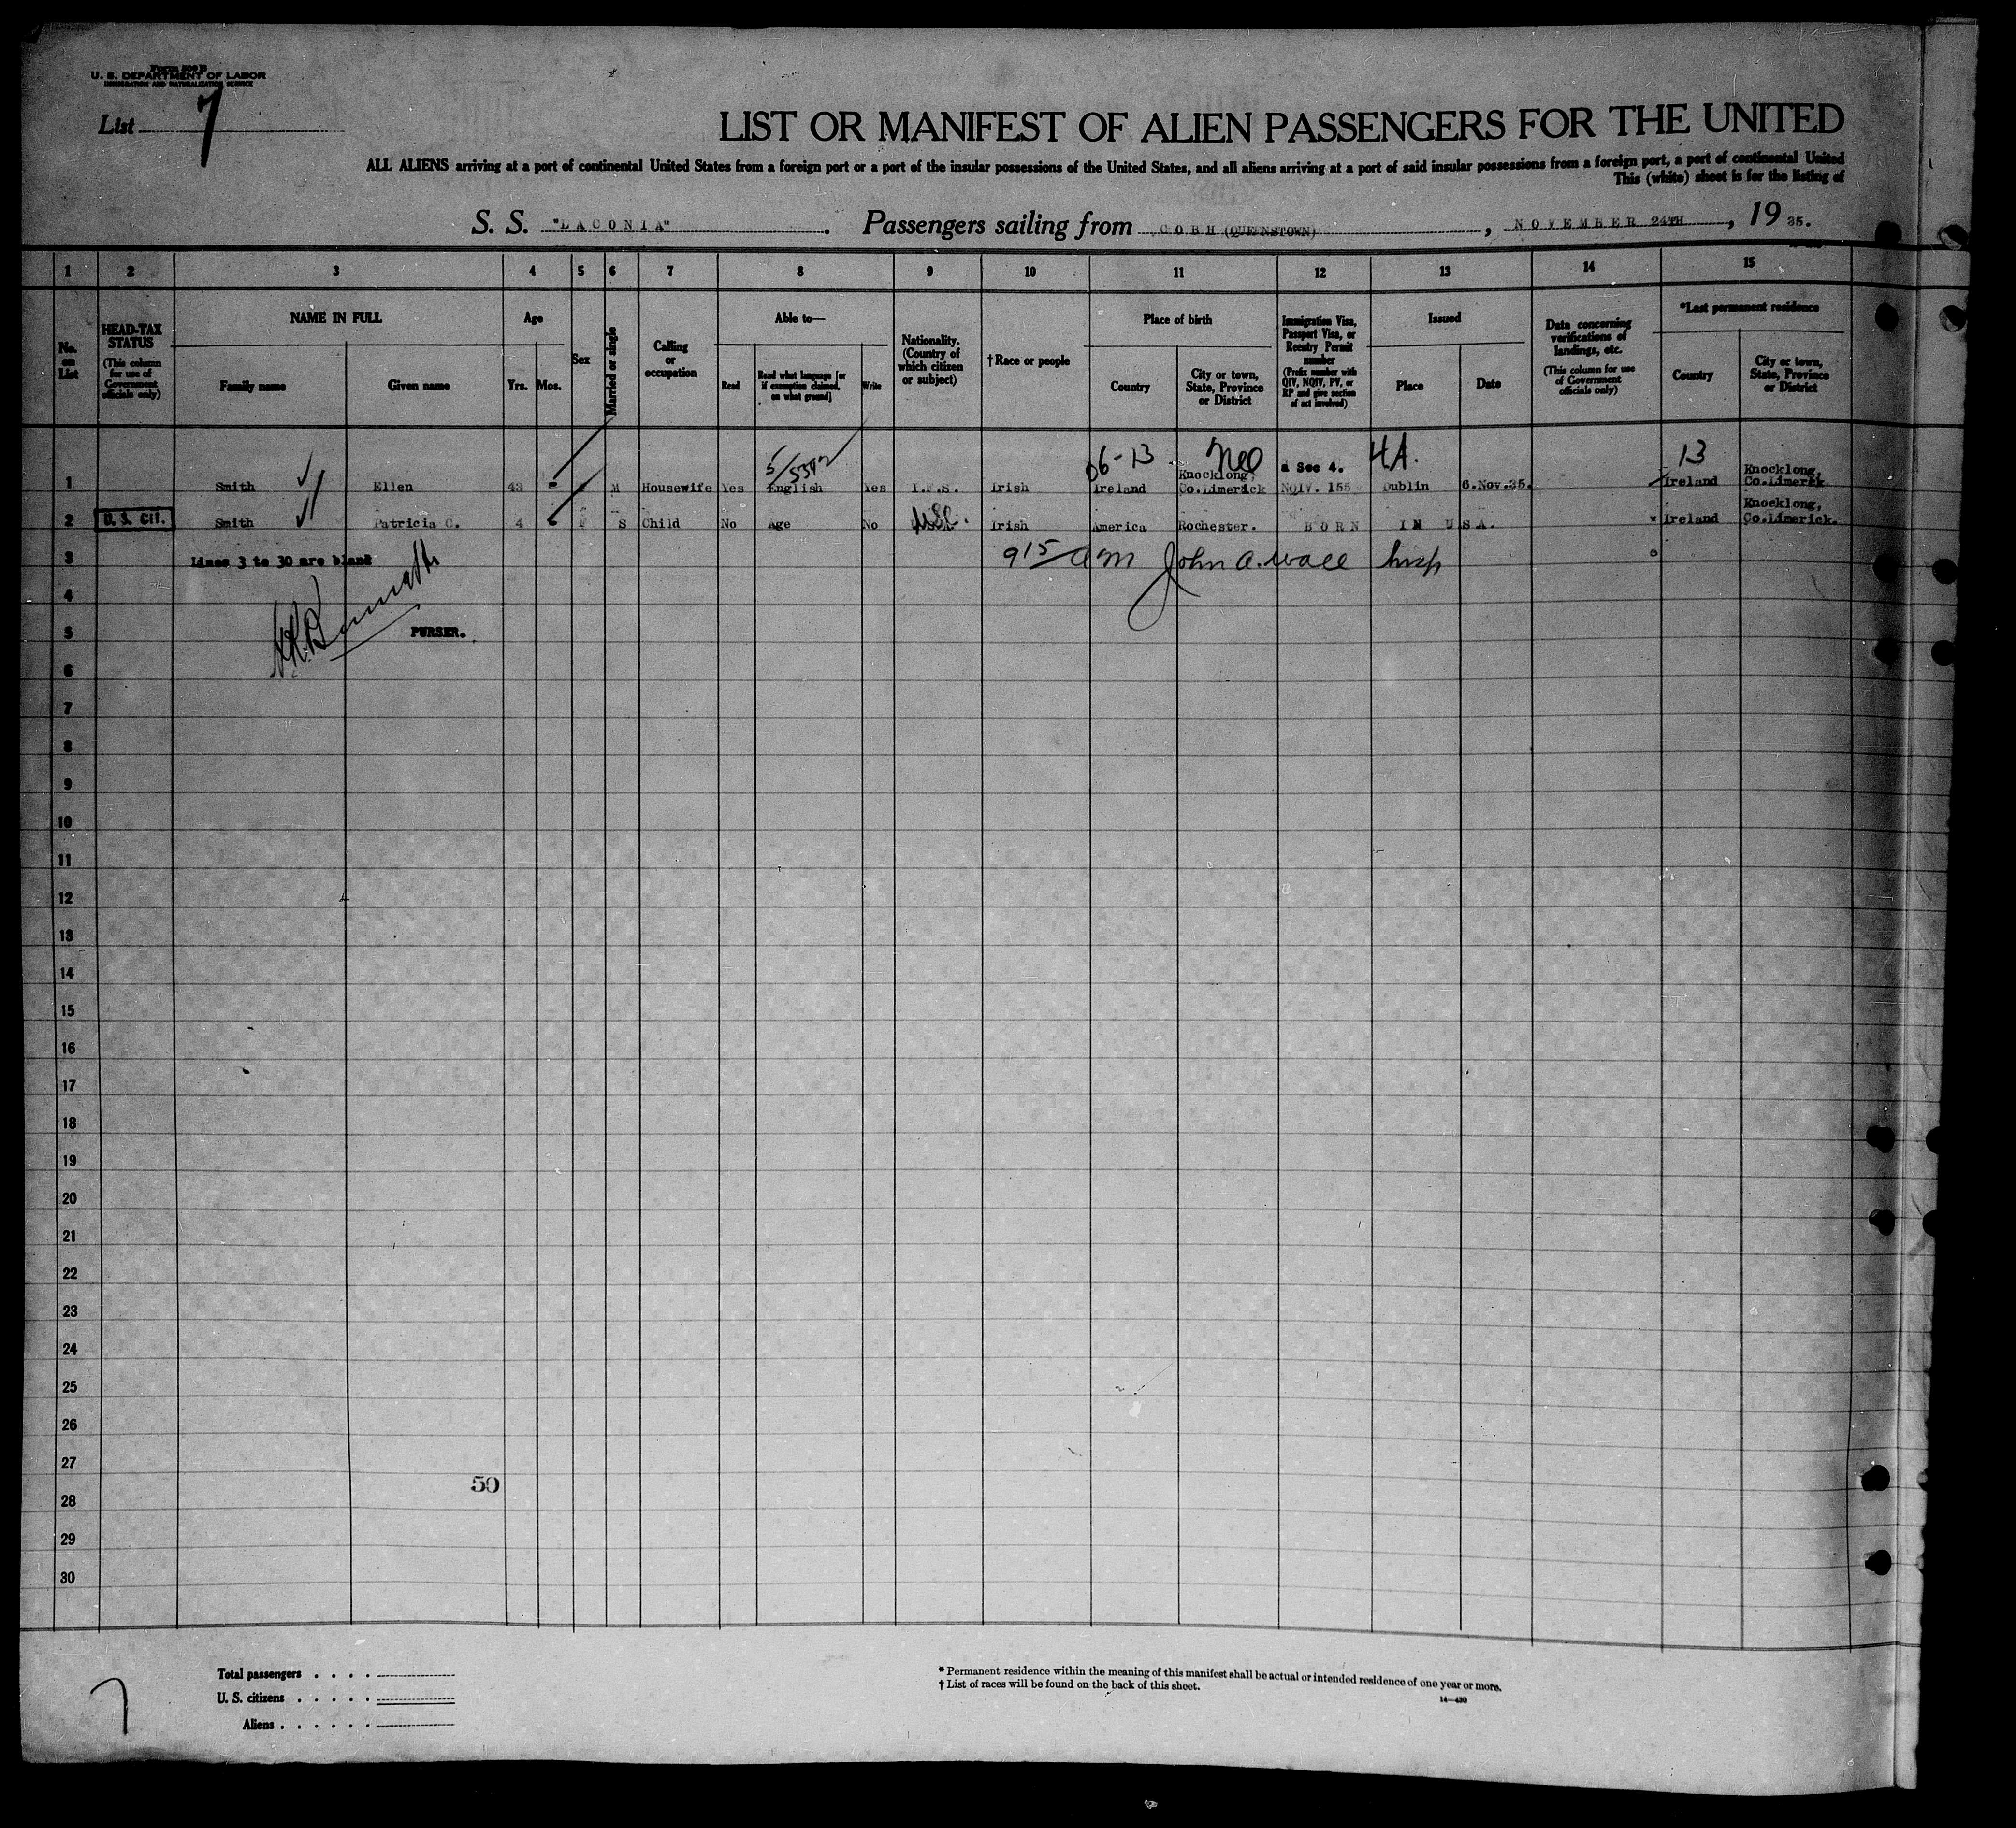 Form 500 B
U. S. DEPARTMENT OF LABOR
IMMIGRATION AND NATURALIZATION SERVICE
List 7
LIST OR MANIFEST OF ALIEN PASSENGERS FOR THE UNITED
ALL ALIENS arriving at a port of continental United States from a foreign port or a port of the insular possessions of the United States, and all aliens arriving at a port of said insular possessions from a foreign port, a port of continental United
This (white) sheet is for the listing of
S. S. "LACONIA". Passengers sailing from COBH (QUEENSTOWN), NOVEMBER 24TH, 1935.
1 2 3 4 5 6 7 8 9 10 11 12 13 14 15
No. on List
HEAD-TAX STATUS (This column for use of Government officials only)
NAME IN FULL
Family name Given name
Age
Yrs. Mos.
Sex
Married or single
Calling or occupation
Able to—
Read Read what language [or if exemption claimed, on what ground] Write
Nationality. (Country of which citizen or subject)
† Race or people
Place of birth
Country City or town, State, Province or District
Immigration Visa, Passport Visa, or Reentry Permit number (Prefix number with QIV, NQIV, PV, or RP and give section of act involved)
Issued
Place Date
Data concerning verifications of landings, etc. (This column for use of Government officials only)
*Last permanent residence
Country City or town, State, Province or District
06-13 a Sec 4. 4A. 13
1 Smith Ellen 43 M Housewife Yes English Yes I.F.S. Irish Ireland Knocklong, Co.Limerick NQIV. 155 Dublin 6.Nov.35. Ireland Knocklong, Co.Limerick
2 U. S. Cit. Smith Patricia C. 4 F S Child No Age No Irish America Rochester. BORN IN USA. Ireland Knocklong, Co.Limerick.
3 Lines 3 to 30 are blank 9 15 am John A. Wall Insp
4
5 PURSER.
6
7
8
9
10
11
12
13
14
15
16
17
18
19
20
21
22
23
24
25
26
27
50
28
29
30
Total passengers
U. S. citizens
Aliens
7
* Permanent residence within the meaning of this manifest shall be actual or intended residence of one year or more.
† List of races will be found on the back of this sheet.
14—430